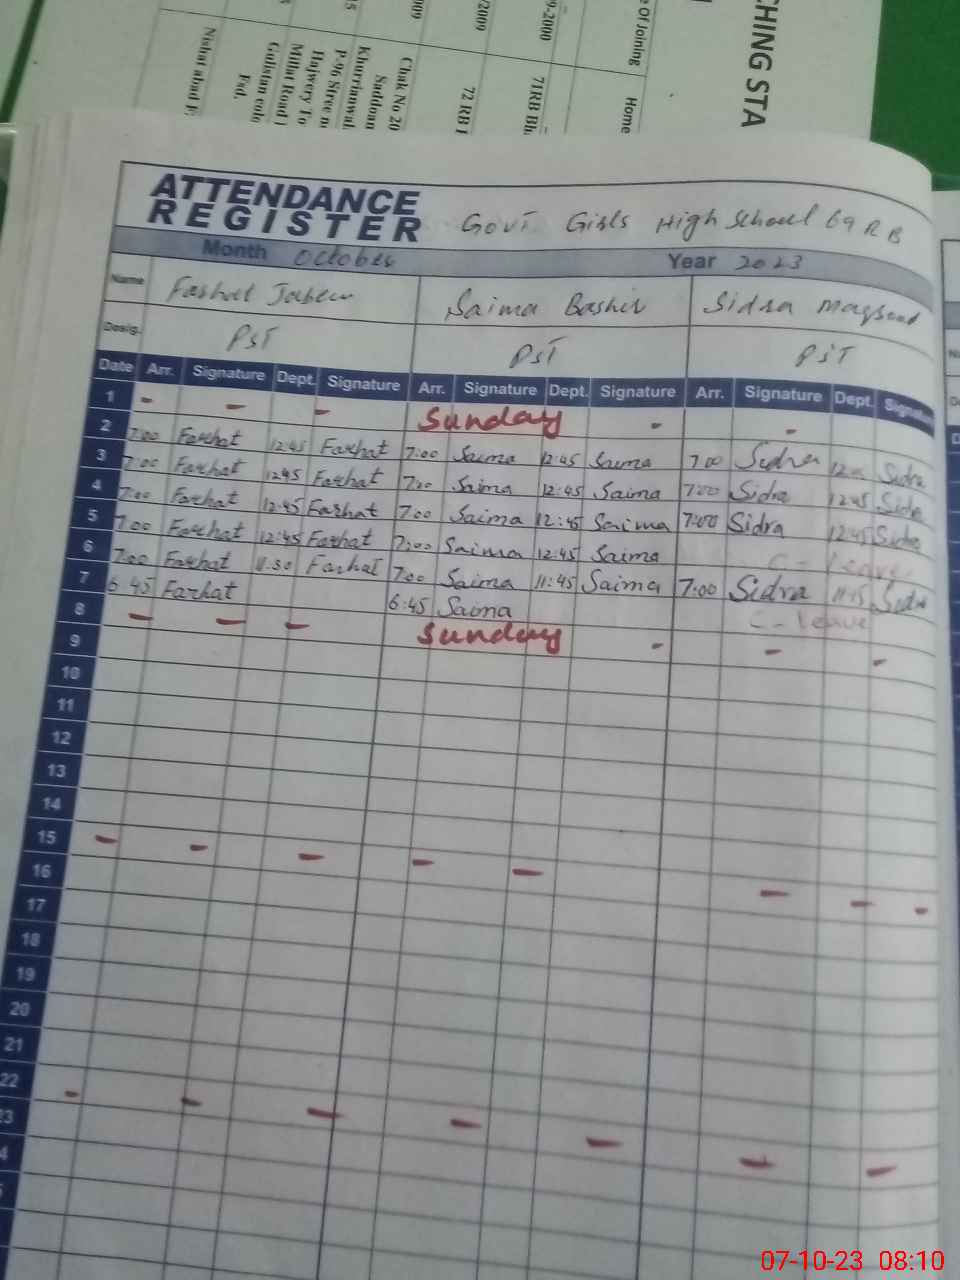 CHING STA
e Of Joining
Home
9-2000
71RB Bh
/2009
72 RB
009
Chak No 20
Saddoan
Khurrianwal
P-96 Stree n
Hajwery To
Millat Road
Gulistan colo
Fsd.
Nishat abad F
ATTENDANCE
REGISTER Govt Girls High School 69 RB
Month October Year 2023
Name Farhat Jabeen Saima Bashir Sidra Maqsood
Desig. PST PST PST
Date Arr. Signature Dept. Signature Arr. Signature Dept. Signature Arr. Signature Dept. Signatu
1 - - - Sunday - -
2 7:00 Farhat 12:45 Farhat 7:00 Saima 12:45 Saima 7:00 Sidra Sidra
3 7:00 Farhat 12:45 Farhat 7:00 Saima 12:45 Saima 7:00 Sidra 12:45 Sidra
4 7:00 Farhat 12:45 Farhat 7:00 Saima 12:45 Saima 7:00 Sidra 12:45 Sidra
5 7:00 Farhat 12:45 Farhat 7:00 Saima 12:45 Saima C-leave
6 7:00 Farhat 11:30 Farhat 7:00 Saima 11:45 Saima 7:00 Sidra 11:45 Sidra
7 6:45 Farhat 6:45 Saima C-leave
8 - - - Sunday - - -
9
10
11
12
13
14
15 - - - - - - - -
16
17
18
19
20
21
22 - - - - - - -
23
4
07-10-23 08:10